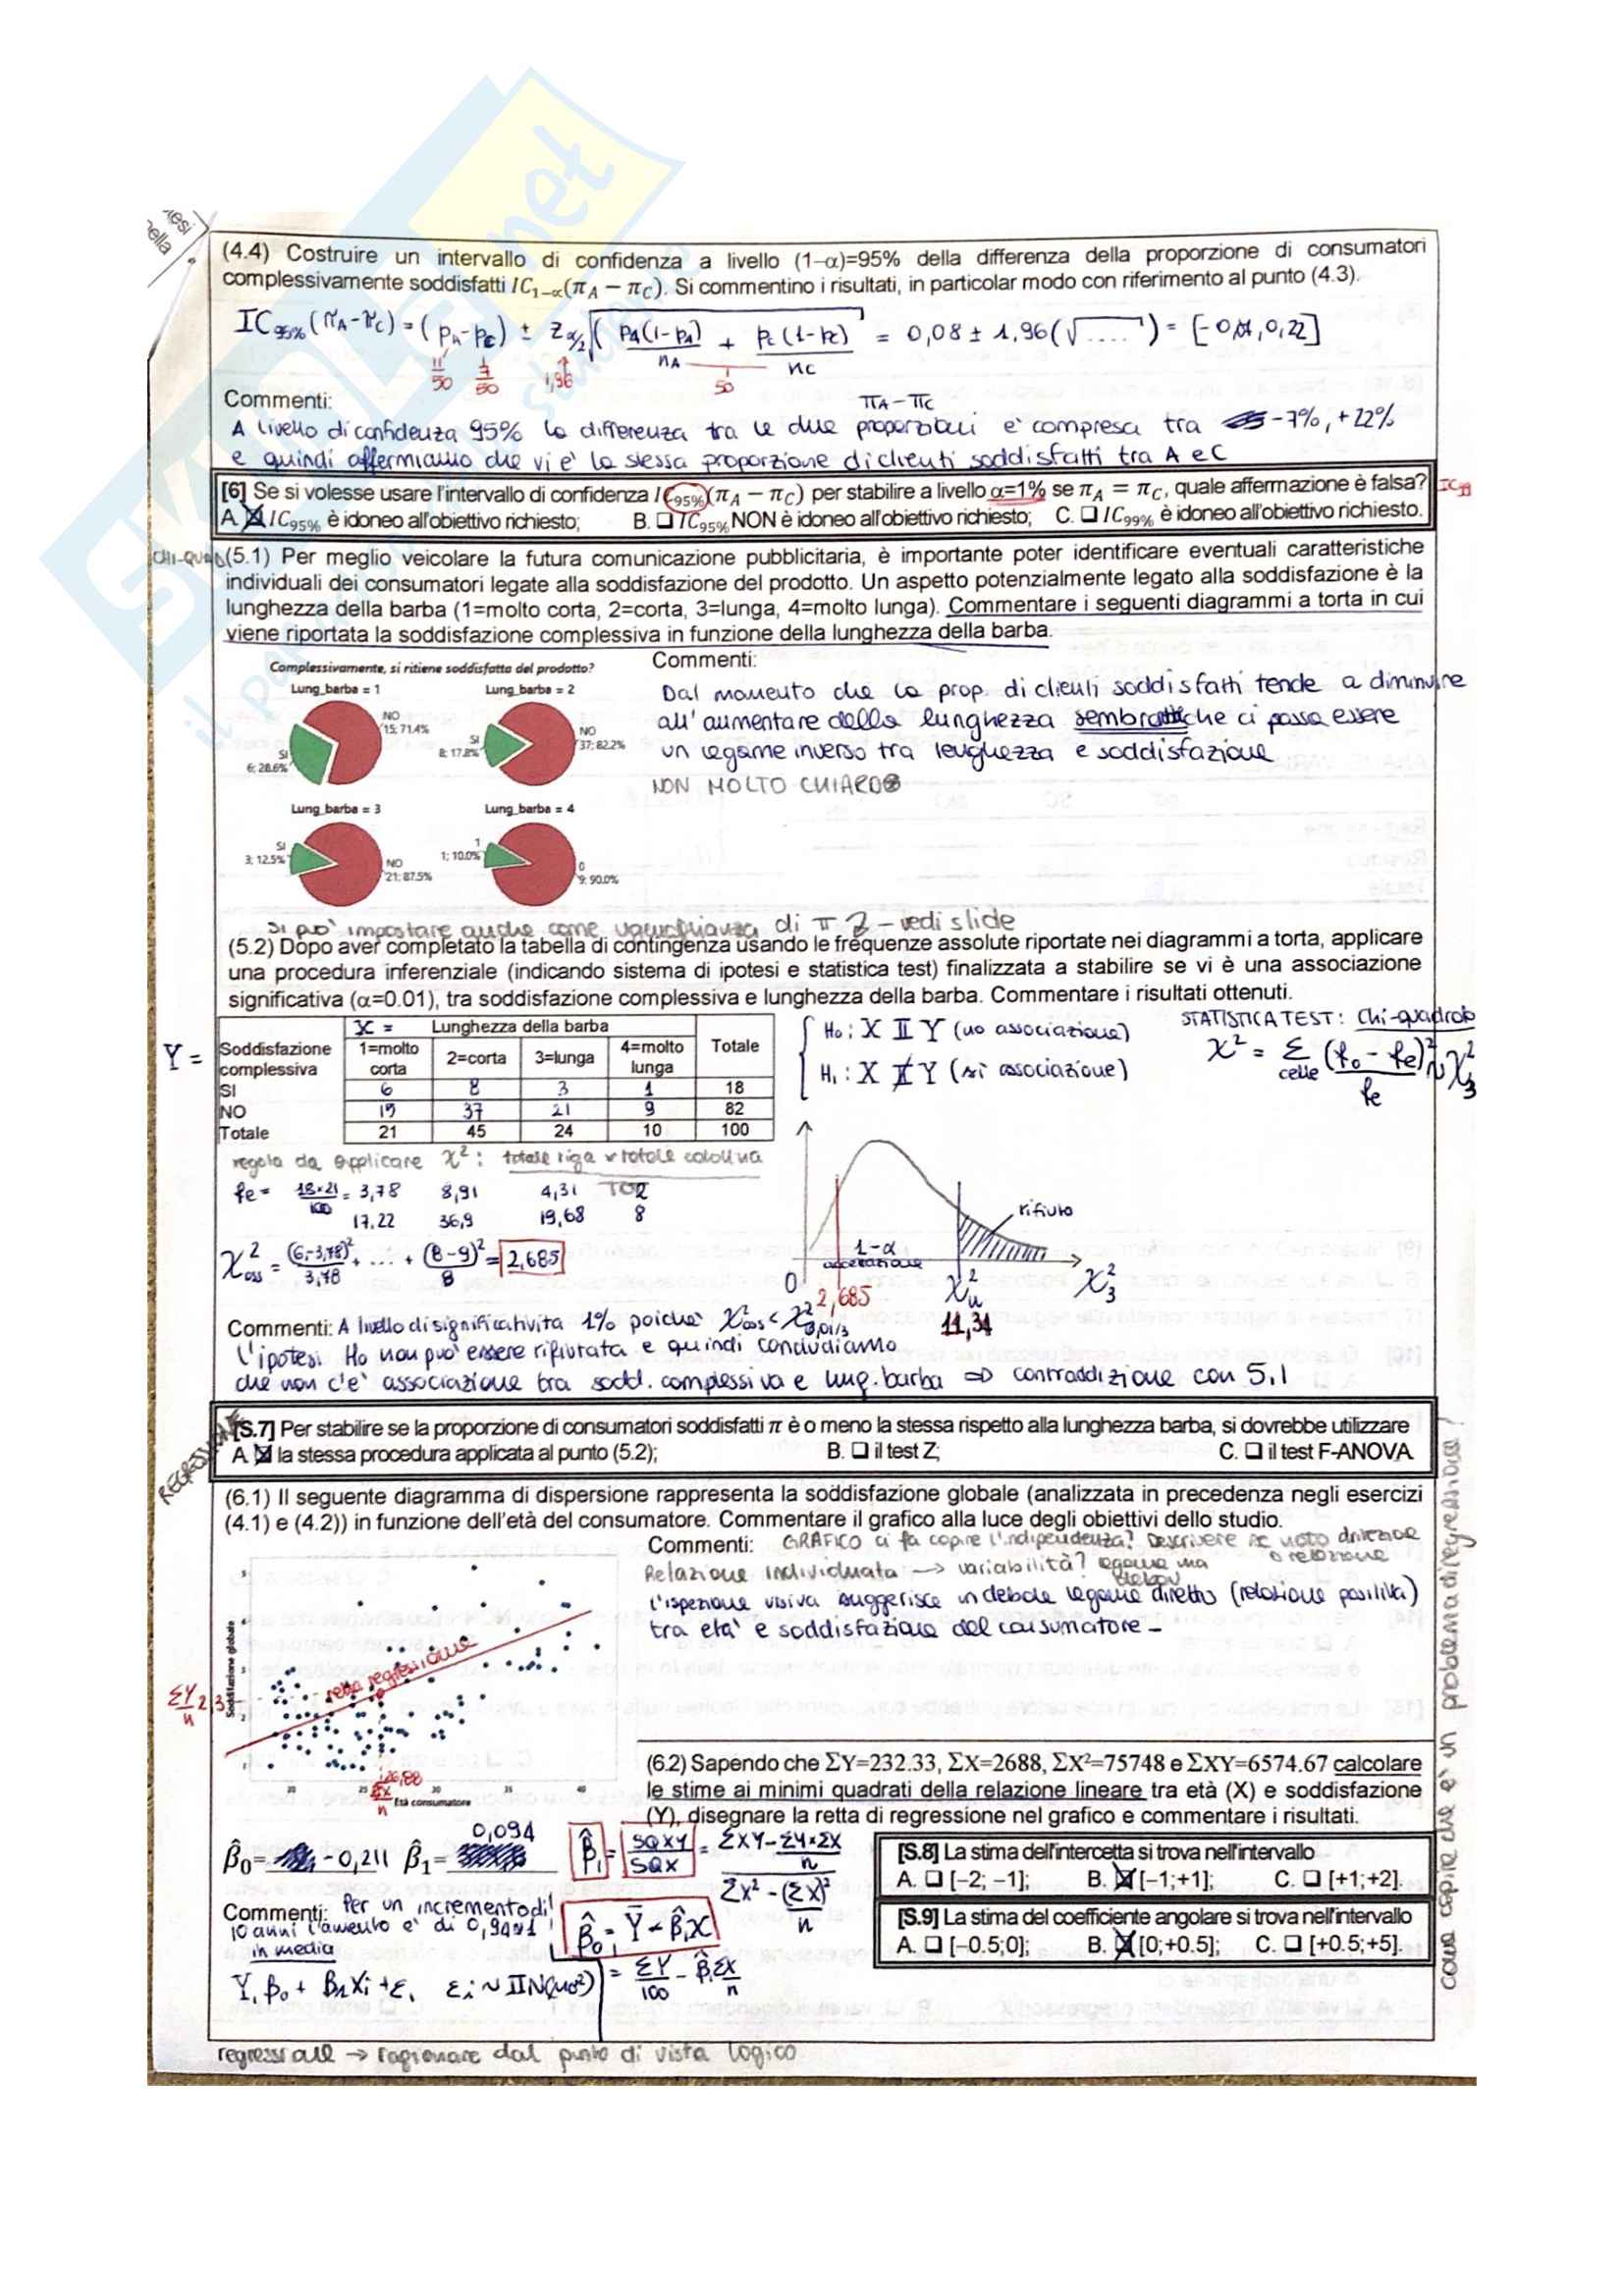 SKUOLA.net
(4.4) Costruire un intervallo di confidenza a livello (1−α)=95% della differenza della proporzione di consumatori
complessivamente soddisfatti IC₁₋∝(π_A − π_C). Si commentino i risultati, in particolar modo con riferimento al punto (4.3).
IC 95% (π_A-π_C) = (p_A-p_C) ± z α/2 √( p_A(1-p_A)/n_A + p_C(1-p_C)/n_C = 0,08 ± 1,96(√....) = [- 0,07, 0,22]
11/50 7/50 1,96 50
Commenti: π_A - π_C
A livello di confidenza 95% la differenza tra le due proporzioni e' compresa tra -7%, +22%
e quindi affermiamo che vi e' la stessa proporzione di clienti soddisfatti tra A e C
[6] Se si volesse usare l'intervallo di confidenza IC95%(π_A − π_C) per stabilire a livello α=1% se π_A = π_C, quale affermazione è falsa? IC99
A. ☒ IC95% è idoneo all'obiettivo richiesto; B. ❑ IC95% NON è idoneo all'obiettivo richiesto; C. ❑ IC99% è idoneo all'obiettivo richiesto.
CHI-QUAD (5.1) Per meglio veicolare la futura comunicazione pubblicitaria, è importante poter identificare eventuali caratteristiche
individuali dei consumatori legate alla soddisfazione del prodotto. Un aspetto potenzialmente legato alla soddisfazione è la
lunghezza della barba (1=molto corta, 2=corta, 3=lunga, 4=molto lunga). Commentare i seguenti diagrammi a torta in cui
viene riportata la soddisfazione complessiva in funzione della lunghezza della barba.
Complessivamente, si ritiene soddisfatto del prodotto?
Lung_barba = 1 Lung_barba = 2
NO
15; 71.4%
SI
6; 28.6%
NO
37; 82.2%
SI
8; 17.8%
Lung_barba = 3 Lung_barba = 4
SI
3; 12.5%
NO
21; 87.5%
1
1; 10.0%
0
9; 90.0%
Commenti:
Dal momento che la prop. di clienti soddisfatti tende a diminuire
all'aumentare della lunghezza sembra che ci possa essere
un legame inverso tra lunghezza e soddisfazione
NON MOLTO CHIARO
Si può impostare anche come uguaglianza di π - vedi slide
(5.2) Dopo aver completato la tabella di contingenza usando le frequenze assolute riportate nei diagrammi a torta, applicare
una procedura inferenziale (indicando sistema di ipotesi e statistica test) finalizzata a stabilire se vi è una associazione
significativa (α=0.01), tra soddisfazione complessiva e lunghezza della barba. Commentare i risultati ottenuti.
X = Lunghezza della barba
Y = Soddisfazione complessiva 1=molto corta 2=corta 3=lunga 4=molto lunga Totale
SI 6 8 3 1 18
NO 15 37 21 9 82
Totale 21 45 24 10 100
H0 : X ⫫ Y (no associazione)
H1 : X ⫫̸ Y (si associazione)
STATISTICA TEST: chi-quadrato
χ² = Σ celle (fo - fe)²/fe ~ χ²₃
regola da applicare χ² : totale riga x totale colonna
TOT
fe = 18×21/100 = 3,78 8,91 4,31 2
17,22 36,9 19,68 8
χ²oss = (6-3,78)²/3,78 + ... + (8-9)²/8 = 2,685
rifiuto
1-α
accettazione
0 2,685 χ²u 11,34 χ²₃
Commenti: A livello di significatività 1% poiché χ²oss < χ²0,01/3
l'ipotesi H0 non può essere rifiutata e quindi concludiamo
che non c'e' associazione tra sodd. complessiva e lung. barba ⇒ contraddizione con 5.1
REGRESSIONE
[S.7] Per stabilire se la proporzione di consumatori soddisfatti π è o meno la stessa rispetto alla lunghezza barba, si dovrebbe utilizzare
A. ☒ la stessa procedura applicata al punto (5.2); B. ❑ il test Z; C. ❑ il test F-ANOVA
(6.1) Il seguente diagramma di dispersione rappresenta la soddisfazione globale (analizzata in precedenza negli esercizi
(4.1) e (4.2)) in funzione dell'età del consumatore. Commentare il grafico alla luce degli obiettivi dello studio.
Commenti: GRAFICO ci fa capire l'indipendenza? Descrivere se noto direzione
o relazione
Relazione individuata → variabilità? legame ma
debole
l'ispezione visiva suggerisce un debole legame diretto (relazione positiva)
tra età e soddisfazione del consumatore -
Soddisfazione globale
retta regressione
ΣY/n 2,3
20 25 30 35 40
26,88
ΣX/n
Età consumatore
(6.2) Sapendo che ΣY=232.33, ΣX=2688, ΣX²=75748 e ΣXY=6574.67 calcolare
le stime ai minimi quadrati della relazione lineare tra età (X) e soddisfazione
(Y), disegnare la retta di regressione nel grafico e commentare i risultati.
β̂0= -0,211 β̂1= 0,094
β̂1 = SQXY/SQX = (ΣXY - ΣY×ΣX/n)/(ΣX² - (ΣX)²/n)
[S.8] La stima dell'intercetta si trova nell'intervallo
A. ❑ [−2; −1]; B. ☒ [−1;+1]; C. ❑ [+1;+2].
[S.9] La stima del coefficiente angolare si trova nell'intervallo
A. ❑ [−0.5;0]; B. ☒ [0;+0.5]; C. ❑ [+0.5;+5].
Commenti: Per un incremento di
10 anni l'aumento e' di 0,9401
in media
β̂0 = Ȳ - β̂1X
= ΣY/100 - β̂1 ΣX/n
Yi β0 + β1Xi + εi εi ~ IIN(0,σ²)
come capire che e' un problema di regressione?
regressione → ragionare dal punto di vista logico